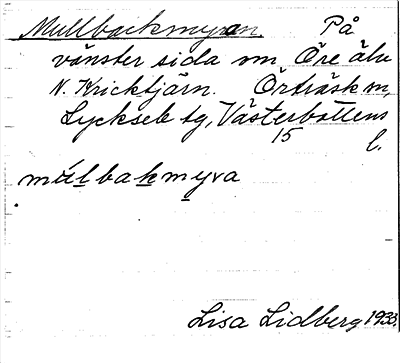 Mullbackmyran. På
vänster sida om Öre älv
N. Kricktjärn. Örträsk sn,
Lycksele tg, Västerbottens
15 l.
mulbakmyra
Lisa Lidberg 1933.